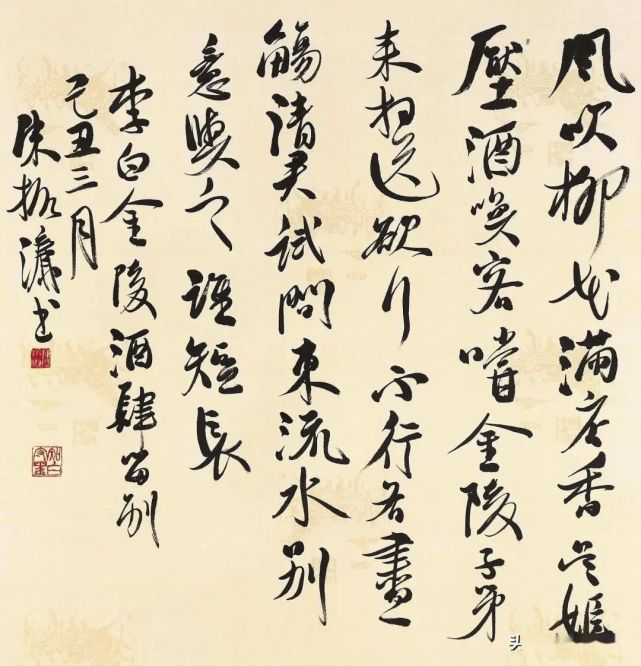 風吹柳花滿店香吳姬
壓酒喚客嚐金陵子弟
来相送欲行不行各盡
觴請君試問東流水别
意與之誰短長
李白金陵酒肆留别
己丑三月
朱振書